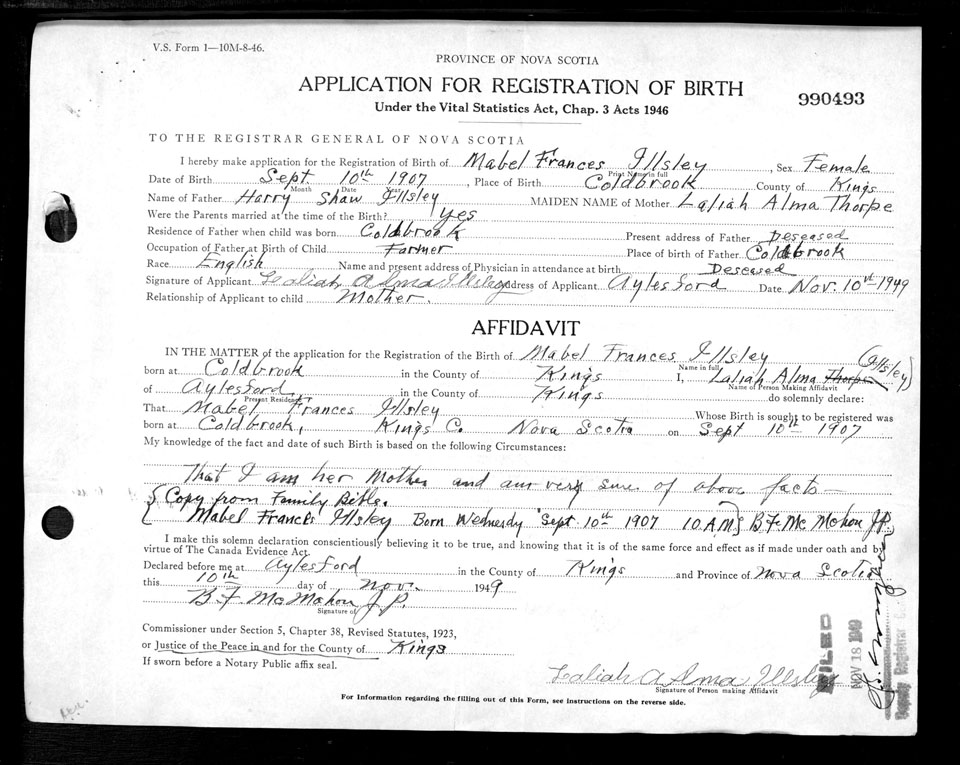 V.S. Form 1—10M-8-46.
PROVINCE OF NOVA SCOTIA
APPLICATION FOR REGISTRATION OF BIRTH
990493
Under the Vital Statistics Act, Chap. 3 Acts 1946
TO THE REGISTRAR GENERAL OF NOVA SCOTIA
I hereby make application for the Registration of Birth of Mabel Frances Illsley, Sex Female
Print Name in full
Date of Birth Sept 10th 1907, Place of Birth Coldbrook County of Kings
Month Date Year
Name of Father Harry Shaw Illsley MAIDEN NAME of Mother Laliah Alma Thorpe
Were the Parents married at the time of the Birth? yes
Residence of Father when child was born Coldbrook Present address of Father Deseased
Occupation of Father at Birth of Child Farmer Place of birth of Father Coldbrook
Race English Name and present address of Physician in attendance at birth Deseased
Signature of Applicant Laliah Alma Illsley Address of Applicant Aylesford Date Nov. 10th 1949
Relationship of Applicant to child Mother.
AFFIDAVIT
IN THE MATTER of the application for the Registration of the Birth of Mabel Frances Illsley
Name in full
(Illsley)
born at Coldbrook in the County of Kings I, Laliah Alma Thorpe
Name of Person Making Affidavit
of Aylesford in the County of Kings do solemnly declare:
Present Residence
That Mabel Frances Illsley Whose Birth is sought to be registered was
born at Coldbrook, Kings C. Nova Scotia on Sept 10th 1907
My knowledge of the fact and date of such Birth is based on the following Circumstances:
That I am her Mother and am very sure of above facts—
{Copy from Family Bible.
Mabel Frances Illsley Born Wednesdy Sept. 10th 1907 10 A.M} B F McMahon J.P.
I make this solemn declaration conscientiously believing it to be true, and knowing that it is of the same force and effect as if made under oath and by
virtue of The Canada Evidence Act.
Declared before me at Aylesford in the County of Kings and Province of Nova Scotia
this 10th day of Nov. 1949
B F McMahon J.P.
Signature of
Commissioner under Section 5, Chapter 38, Revised Statutes, 1923,
or Justice of the Peace in and for the County of Kings
If sworn before a Notary Public affix seal.
Laliah Alma Illsley
Signature of Person making Affidavit
For Information regarding the filling out of this Form, see instructions on the reverse side.
FILED
NOV 18 1949
Deputy Registrar